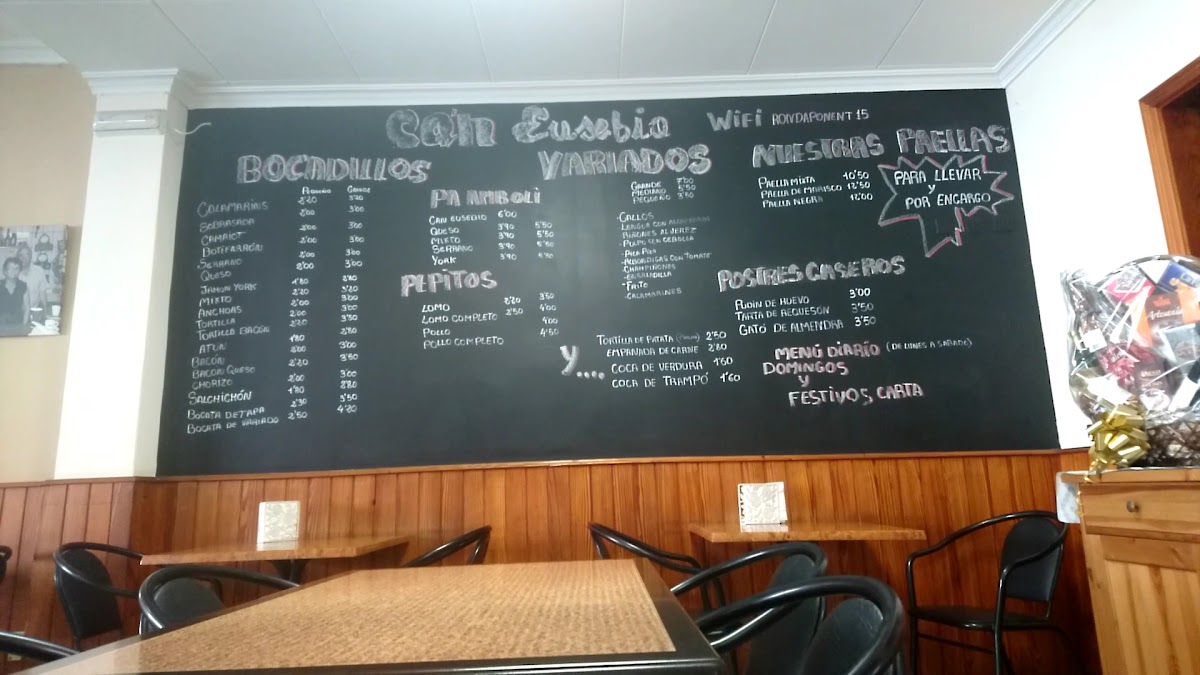 Can Eusebio
WiFi RONDAPONENT 15
BOCADILLOS
PEQUEÑO GRANDE
CALAMARINS 2'20 3'20
SOBRASADA 2'00 3'00
CAMAIOT 2'00 3'00
BOTIFARRÓN 2'00 3'00
SERRANO 2'00 3'00
QUESO
JAMON YORK
MIXTO
ANCHOAS
TORTILLA
TORTILLA BACÓN
ATÚN
BACÓN
BACON QUESO
CHORIZO
SALCHICHÓN
BOCATA DE TAPA 2'30 3'50
BOCATA DE VARIADO 2'50 4'20
PA AMBOLI
CAN EUSEBIO 6'00
QUESO 3'90 5'50
MIXTO 3'90 5'50
SERRANO 3'90 5'50
YORK 3'90 5'50
PEPITOS
LOMO 2'20 3'50
LOMO COMPLETO 2'50 4'00
POLLO 4'00
POLLO COMPLETO 4'50
VARIADOS
GRANDE 7'00
MEDIANO 5'50
PEQUEÑO 3'50
-CALLOS
-LENGUA CON ALCAPARRAS
-PULPO CON CEBOLLA
-PICA PICA
-ALBONDIGAS CON TOMATE
-CHAMPIÑONES
-ENSALADILLA
-FRITO
-CALAMARINES
Y....
TORTILLA DE PATATA 2'50
EMPANADA DE CARNE 2'80
COCA DE VERDURA 1'60
COCA DE TRAMPÓ 1'60
NUESTRAS PAELLAS
PAELLA MIXTA 10'50
PAELLA DE MARISCO 12'50
PAELLA NEGRA 12'00
PARA LLEVAR
Y
POR ENCARGO
POSTRES CASEROS
PUDIN DE HUEVO 3'00
TARTA DE REQUESON 3'50
GATÓ DE ALMENDRA 3'50
MENÚ DIARIO (DE LUNES A SABADO)
DOMINGOS
Y
FESTIVOS CARTA